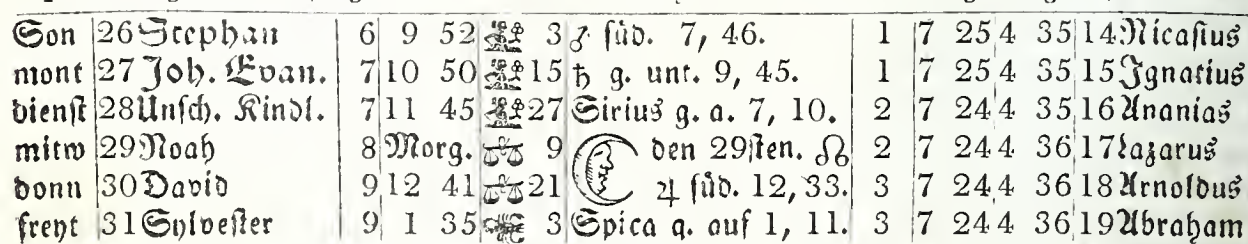 Son 26 Stephan 6 9 52 3 ♂ süd. 7, 46. 1 7 25 4 35 14 Nicasius
mont 27 Joh. Evan. 7 10 50 15 ♄ g. unt. 9, 45. 1 7 25 4 35 15 Ignatius
dienst 28 Unsch. Kindl. 7 11 45 27 Sirius g. a. 7, 10. 2 7 24 4 35 16 Ananias
mitw 29 Noah 8 Morg. ♎ 9 ☾ den 29sten. ☊ 2 7 24 4 36 17 Lazarus
donn 30 David 9 12 41 ♎ 21 ♃ süd. 12, 33. 3 7 24 4 36 18 Arnoldus
freyt 31 Sylvester 9 1 35 3 Spica g. auf 1, 11. 3 7 24 4 36 19 Abraham